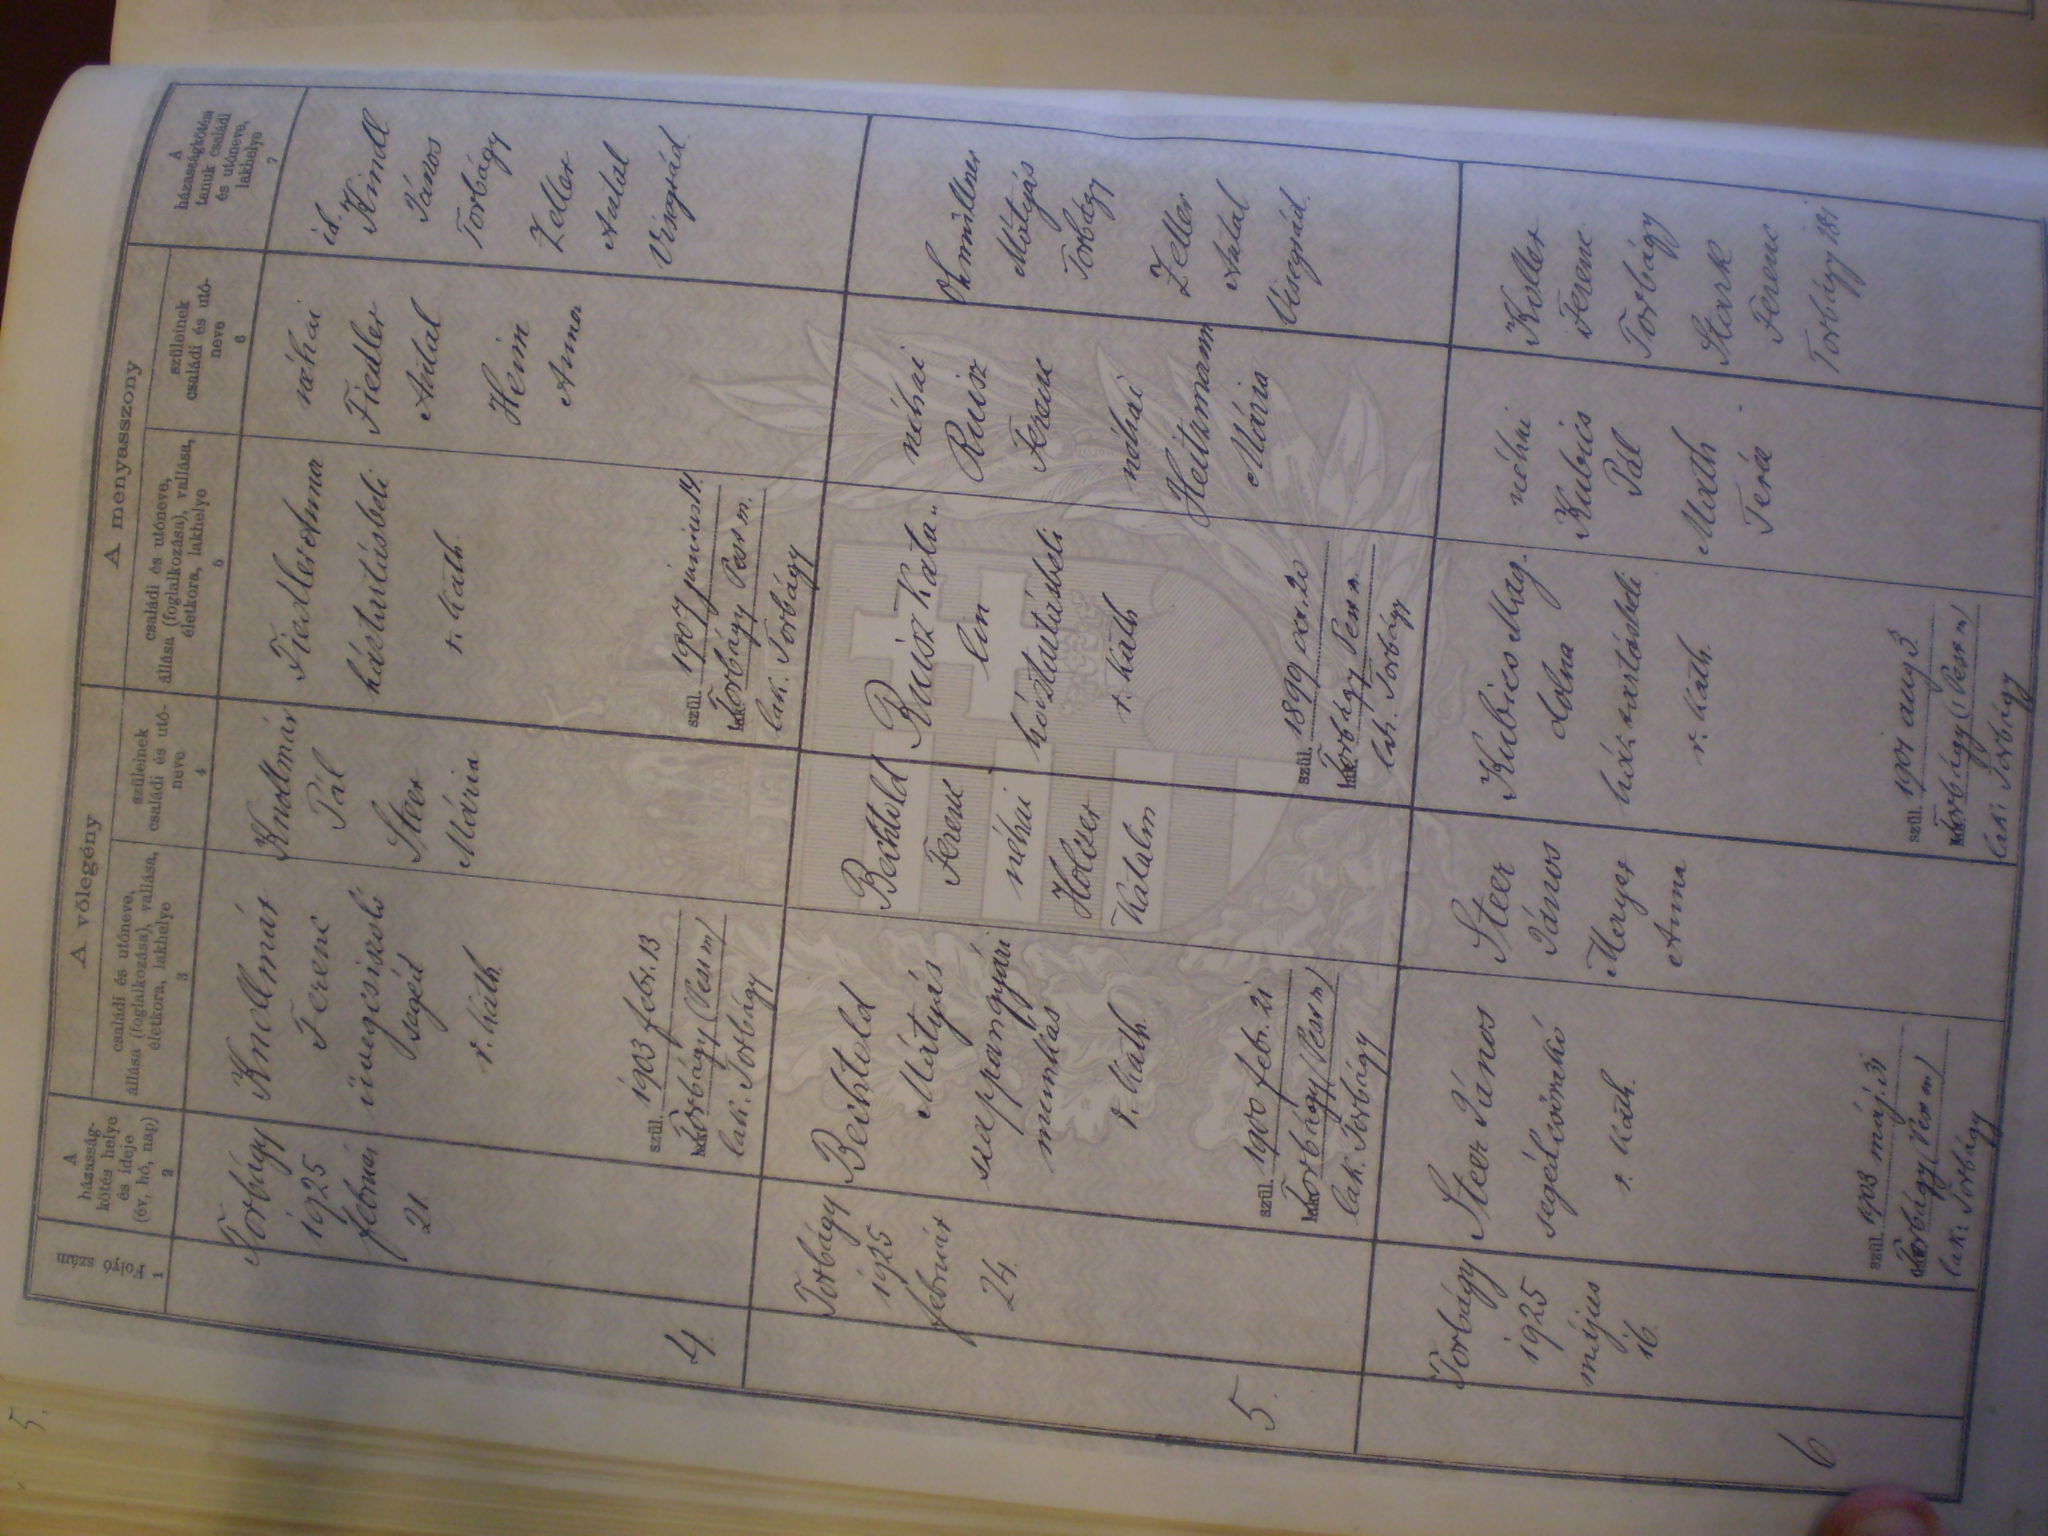 5.
A vőlegény
A menyasszony
Folyó szám
1
A
házasság-
kötés helye
és ideje
(év, hó, nap)
2
családi és utóneve,
állása (foglalkozása), vallása,
életkora, lakhelye
3
szüleinek
családi és utó-
neve
4
családi és utóneve,
állása (foglalkozása), vallása,
életkora, lakhelye
5
szüleinek
családi és utó-
neve
6
A
házasságkötési
tanuk családi
és utóneve,
lakhelye
7
4.
Torbágy
1925
február
21.
Knollmár
Ferenc
üvegcsiszoló
segéd
r. kath.
szül. 1903 febr. 13
Torbágy (Pest m)
lak. Torbágy
Knollmár
Pál
Steer
Mária
Fiedler Anna
háztartásbeli
r. kath.
szül. 1907 június 14.
Torbágy Pest m.
lak. Torbágy
néhai
Fiedler
Antal
Heim
Anna
id. Kindl
János
Torbágy
Zeller
Antal
Visegrád.
5.
Torbágy
1925
február
24.
Bechtold
Mátyás
szappangyári
munkás
r. kath.
szül. 1900 febr. 21
Torbágy (Pest m)
lak. Torbágy
Bechtold
Ferenc
néhai
Holczer
Katalin
Ruisz Kata-
lin
háztartásbeli
r. kath
szül. 1899 oct. 20
Torbágy Pest m.
lak. Torbágy
néhai
Ruisz
Ferenc
néhai
Heitzmann
Mária
Ohmüllner
Mátyás
Torbágy
Zeller
Antal
Visegrád.
6
Torbágy
1925
május
16.
Steer János
segédcsőszkő
r. kath.
szül. 1903 máj. 31
Torbágy (Pest m)
lak: Torbágy
Steer
János
Menyes
Anna
Kubics Mag-
dolna
háztartásbeli
r. kath.
szül. 1901 aug 3
Torbágy (Pest m)
lak: Torbágy
néhai
Kubics
Pál
Math
Teréz
Koller
Ferenc
Torbágy
Stark
Ferenc
Torbágy 181